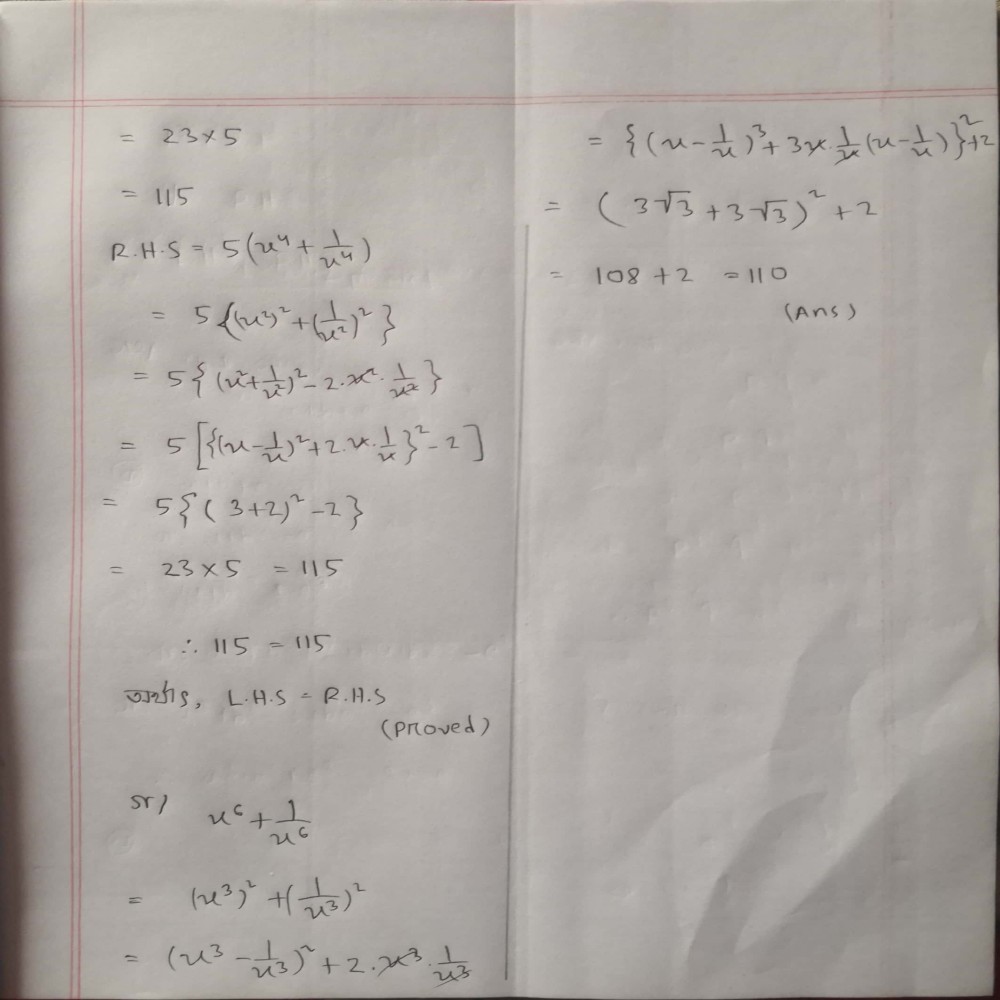 = 23×5
= 115
R.H.S = 5(x⁴ + 1/x⁴)
= 5{(x²)² + (1/x²)²}
= 5{(x² + 1/x²)² - 2·x²·1/x²}
= 5[{(x - 1/x)² + 2·x·1/x}² - 2]
= 5{(3+2)² - 2}
= 23×5 = 115
∴ 115 = 115
অর্থাৎ, L.H.S = R.H.S
(Proved)
গ)
x⁶ + 1/x⁶
= (x³)² + (1/x³)²
= (x³ - 1/x³)² + 2·x³·1/x³
= {(x - 1/x)³ + 3x·1/x(x - 1/x)}² + 2
= (3√3 + 3√3)² + 2
= 108 + 2 = 110
(Ans)